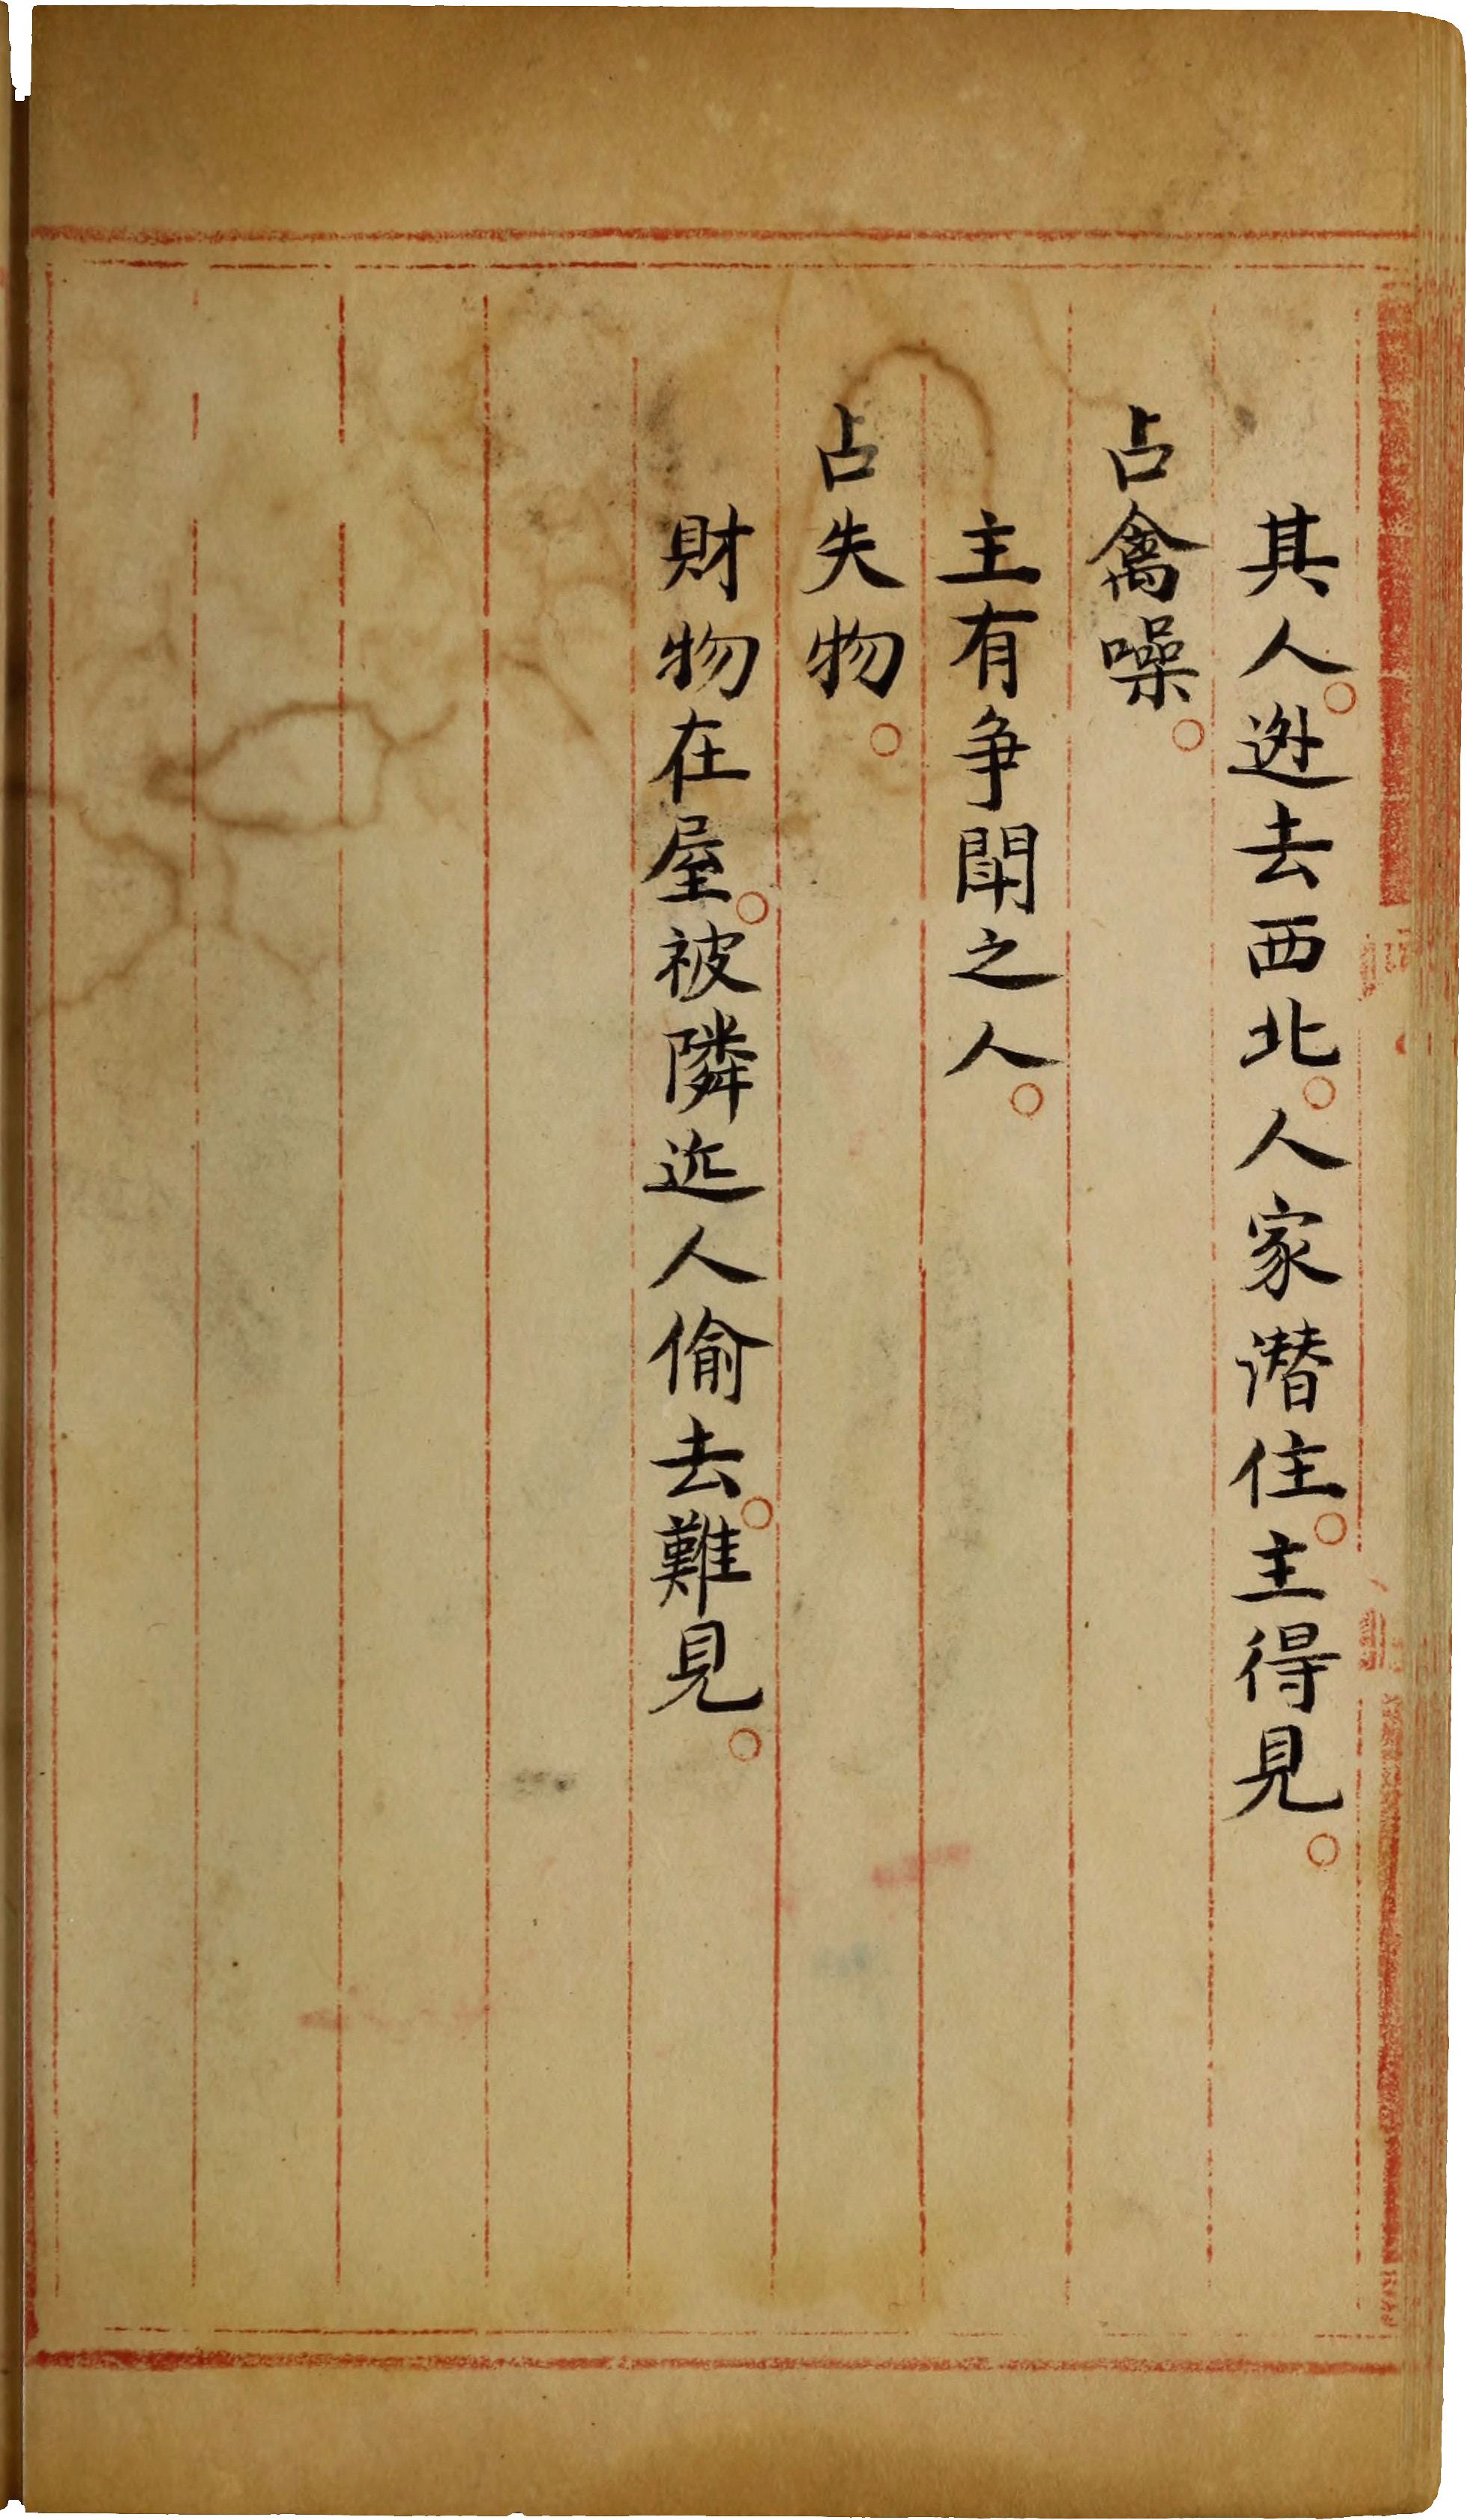 其人。逃去西北。人家潜住。主得見。
占禽噪。
主有争鬪之人。
占失物。
財物在屋。被隣近人偷去。難見。